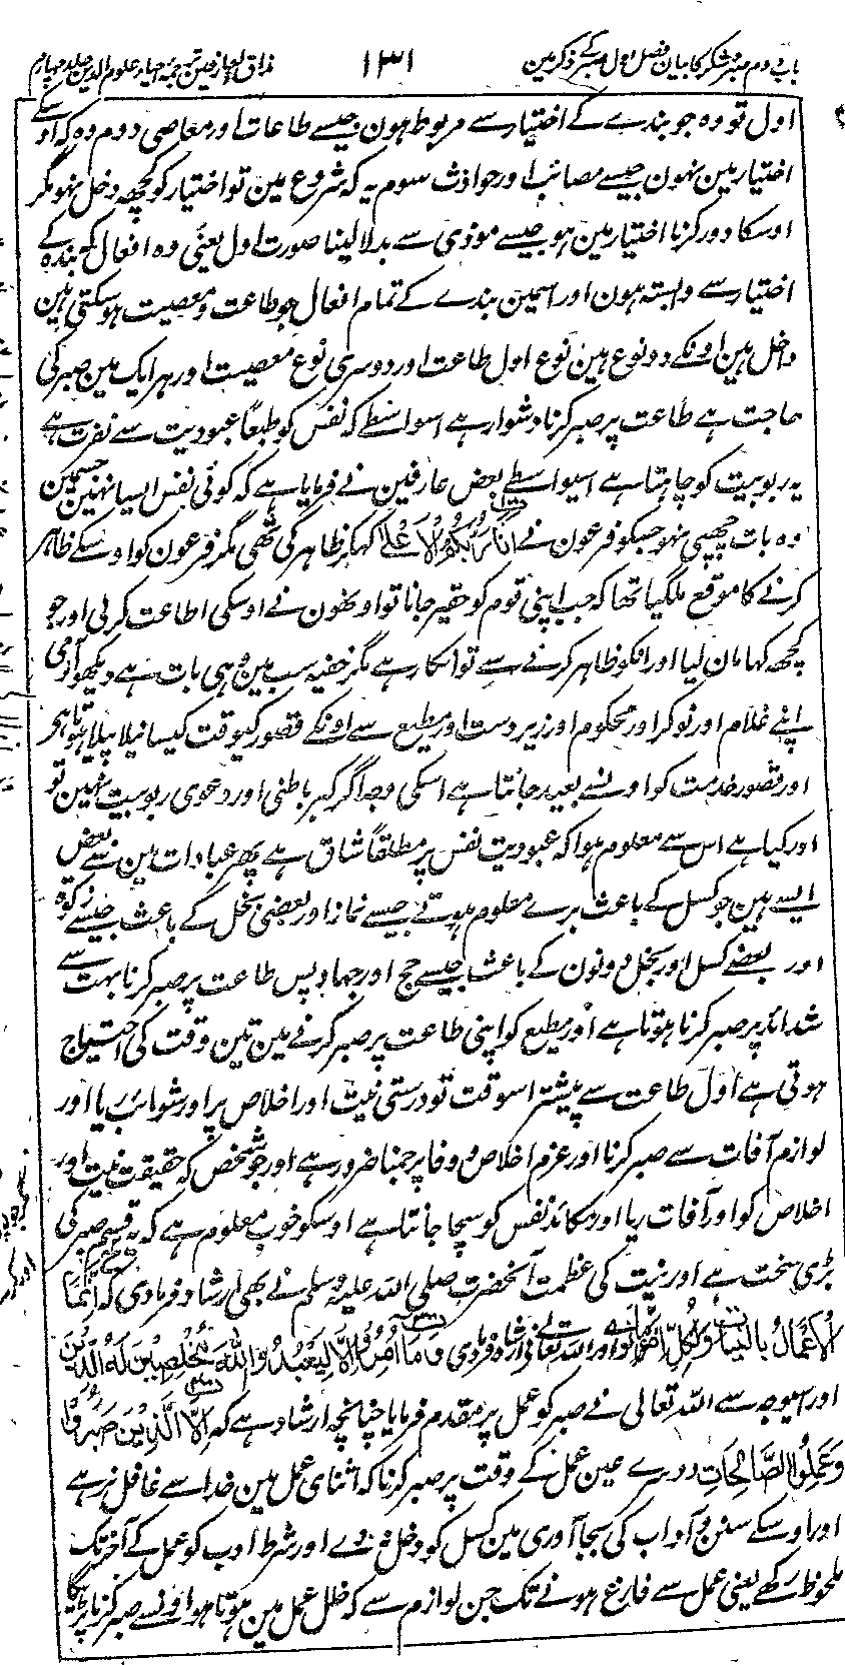 باب دوم صبر و شکر کا بیان فصل اول صبر کے ذکر مین
۱۳۱
مذاق العارفین ترجمہ احیاء علوم الدین جلد چہارم
اول تو وہ جو بندے کے اختیار سے مربوط ہون جیسے طاعات اور معاصی دوم وہ کہ اوسکے
اختیار مین نہون جیسے مصائب اور حوادث سوم یہ کہ شروع مین تو اختیار کو کچھہ دخل نہو مگر
اوسکا دور کرنا اختیار مین ہو جیسے موذی سے بدلا لینا صورت اول یعنی وہ افعال کہ بندہ کے
اختیار سے وابستہ ہون اور اسمین بندے کے تمام افعال جو طاعت و معصیت ہو سکتی ہین
داخل ہین اونکے دو نوع ہین نوع اول طاعت اور دوسری نوع معصیت اور ہر ایک مین صبر کی
حاجت ہے طاعت پر صبر کرنا دشوار ہے اسواسطے کہ نفس کو طبعاً عبودیت سے نفرت ہے
یہ ربوبیت کو چاہتا ہے اسیواسطے بعض عارفین نے فرمایا ہے کہ کوئی نفس ایسا نہین جسمین
وہ بات چھپی نہو جسکو فرعون نے اَنَا رَبُّکُمُ الْاَعْلٰی کہکر ظاہر کی تھی مگر فرعون کو اوسکے ظاہر
کرنے کا موقع ملگیا تھا کہ جب اپنی قوم کو حقیر جانا تو اونھون نے اوسکی اطاعت کر لی اور جو
کچھہ کہا مان لیا اور انکو ظاہر کرنے سے تو انکار ہے مگر خفیہ سب مین وہی بات ہے دیکھو آدمی
اپنے غلام اور نوکر اور محکوم اور زیردست اور مطیع سے اونکے قصور کیوقت کیسا نیلا پیلا ہوتا ہے
اور قصور خدمت کو اونسے بعید جانتا ہے اسکی وجہ اگر کبر باطنی اور دعوی ربوبیت نہین تو
اور کیا ہے اس سے معلوم ہوا کہ عبودیت نفس پر مطلقاً شاق ہے پھر عبادات مین سے بعض
ایسے ہین جو کسل کے باعث برے معلوم ہوتے جیسے نماز اور بعضی بخل کے باعث جیسے زکوۃ
اور بعضے کسل اور بخل دونون کے باعث جیسے حج اور جہاد پس طاعت پر صبر کرنا بہت سے
شدائد پر صبر کرنا ہوتا ہے اور مطیع کو اپنی طاعت پر صبر کرنے مین تین وقت کی احتیاج
ہوتی ہے اول طاعت سے پیشتر اسوقت تو درستی نیت اور اخلاص پر اور شوائب ریا اور
لوازم آفات سے صبر کرنا اور عزم اخلاص و وفا پر جمنا ضرور ہے اور جو شخص کہ حقیقت نیت اور
اخلاص کو اور آفات ریا اور مکائد نفس کو سچا جانتا ہے اوسکو خوب معلوم ہے کہ یہ قسم صبر کی
بڑی سخت ہے اور نیت کی عظمت آنحضرت صلی اللہ علیہ وسلم نے بھی ارشاد فرما دی کہ اِنَّمَا
الْاَعْمَالُ بِالنِّیَّاتِ وَلِکُلِّ امْرِئٍ مَّا نَوٰی اور اللہ تعالی نے ارشاد فرمادی وَمَا اُمِرُوْا اِلَّا لِیَعْبُدُوا اللّٰہَ مُخْلِصِیْنَ لَہُ الدِّیْنَ
اور اسیوجہ سے اللہ تعالی نے صبر کو عمل پر مقدم فرمایا چنانچہ ارشاد ہے کہ اِلَّا الَّذِیْنَ صَبَرُوْا
وَعَمِلُوا الصَّالِحَاتِ دوسرے عین عمل کے وقت پر صبر کرنا کہ اثنای عمل مین خدا سے غافل نرہے
اور اوسکے سنن و آداب کی بجا آوری مین کسل کو دخل ندے اور شرط ادب کو عمل کے آخر تک
ملحوظ رکھے یعنی عمل سے فارغ ہونے تک جن لوازم سے کہ خلل عمل مین ہوتا ہو اونسے صبر کرنا پڑیگا